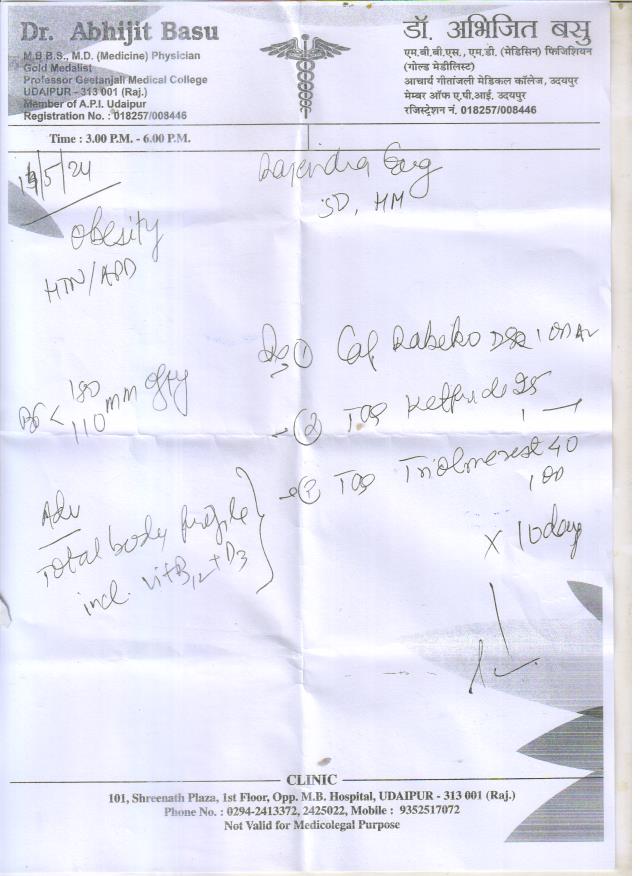 Dr. Abhijit Basu
M.B B.S., M.D. (Medicine) Physician
Gold Medalist
Professor Geetanjali Medical College
UDAIPUR - 313 001 (Raj.)
Member of A.P.I. Udaipur
Registration No. : 018257/008446
Time : 3.00 P.M. - 6.00 P.M.
डॉ. अभिजित बसु
एम.बी.बी.एस., एम.डी. (मेडिसिन) फिजिशियन
(गोल्ड मेडीलिस्ट)
आचार्य गीतांजली मेडिकल कॉलेज, उदयपुर
मेम्बर ऑफ ए.पी.आई. उदयपुर
रजिस्ट्रेशन नं. 018257/008446
/5/24
Rajendra
obesity
HTN/APD
Cap Rabeko DSR
BP < 180/110 mm
Tab 25
Tab 40
Adv
Total body profile
incl. Vit B12 + D3
x 10 day
CLINIC
101, Shreenath Plaza, 1st Floor, Opp. M.B. Hospital, UDAIPUR - 313 001 (Raj.)
Phone No. : 0294-2413372, 2425022, Mobile : 9352517072
Not Valid for Medicolegal Purpose